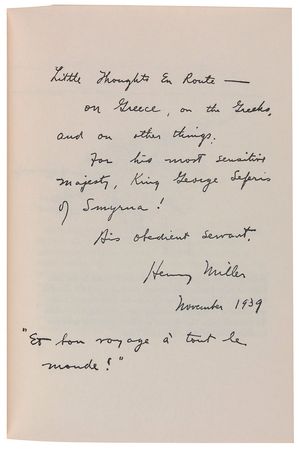 Little Thoughts En Route —
on Greece, on the Greeks,
and on other things.
For his most sensitive
majesty, King George Seferis
of Smyrna!
His obedient servant,
Henry Miller
November 1939
"Et bon voyage à tout le
monde!"